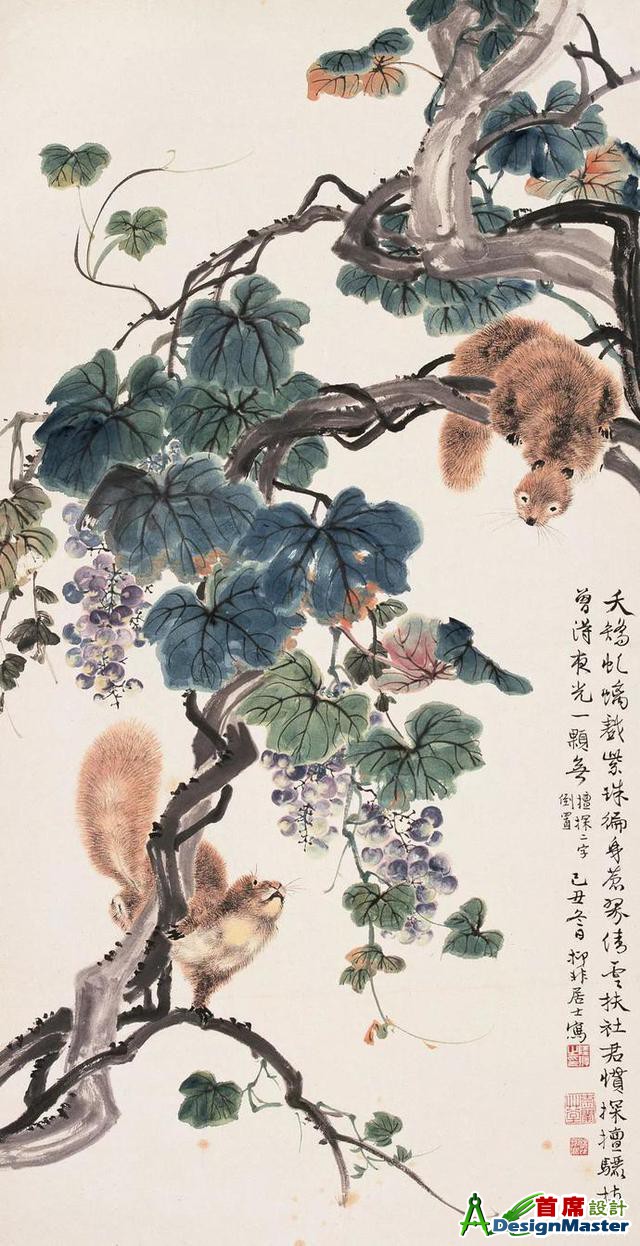 夭矯虬螭戲紫珠徧身蒼翠倩雲扶社君慣探擅驪
曾得夜光一顆無 擅探二字
倒置 己丑冬日抑非居士寫
首席設計
DesignMaster